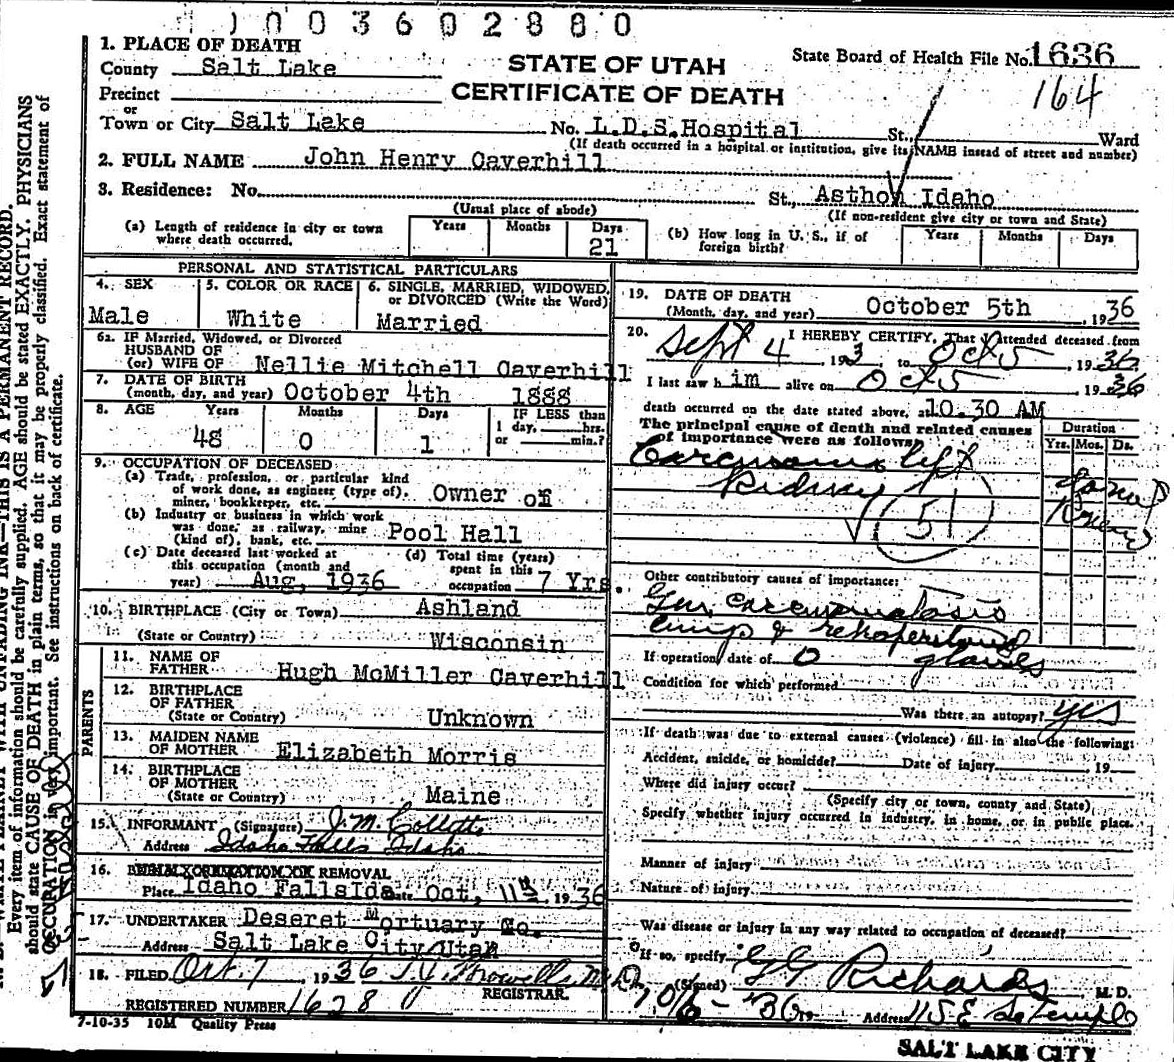 1003602880
1. PLACE OF DEATH
County Salt Lake
STATE OF UTAH
State Board of Health File No. 1636
Precinct
CERTIFICATE OF DEATH
164
or
Town or City Salt Lake No. L.D.S. Hospital St., Ward
(If death occurred in a hospital or institution, give its NAME instead of street and number)
2. FULL NAME John Henry Caverhill
3. Residence: No. St., Asthon Idaho
(Usual place of abode) (If non-resident give city or town and State)
(a) Length of residence in city or town where death occurred. Years Months Days 21
(b) How long in U. S., if of foreign birth? Years Months Days
PERSONAL AND STATISTICAL PARTICULARS
4. SEX 5. COLOR OR RACE 6. SINGLE, MARRIED, WIDOWED, or DIVORCED (Write the Word)
Male White Married
6a. IF Married, Widowed, or Divorced
HUSBAND OF
(or) WIFE OF Nellie Mitchell Caverhill
7. DATE OF BIRTH
(month, day, and year) October 4th 1888
8. AGE Years Months Days IF LESS than
1 day, hrs.
or min.?
48 0 1
9. OCCUPATION OF DECEASED
(a) Trade, profession, or particular kind
of work done, as engineer (type of),
miner, bookkeeper, etc. Owner of
(b) Industry or business in which work
was done, as railway, mine
(kind of), bank, etc. Pool Hall
(c) Date deceased last worked at
this occupation (month and
year) Aug, 1936
(d) Total time (years)
spent in this
occupation 7 Yrs.
10. BIRTHPLACE (City or Town) Ashland
(State or Country) Wisconsin
PARENTS
11. NAME OF
FATHER Hugh McMiller Caverhill
12. BIRTHPLACE
OF FATHER
(State or Country) Unknown
13. MAIDEN NAME
OF MOTHER Elizabeth Morris
14. BIRTHPLACE
OF MOTHER
(State or Country) Maine
15. INFORMANT (Signature) J.M. Collett
Address Idaho Falls Idaho
16. BURIAL, CREMATION OR REMOVAL
Place Idaho Falls Ida Date Oct, 11th, 1936
17. UNDERTAKER Deseret Mortuary Co.
Address Salt Lake City Utah
18. FILED Oct. 7, 1936
REGISTRAR.
REGISTERED NUMBER 1628
7-10-35 10M Quality Press
19. DATE OF DEATH
(Month, day, and year) October 5th, 1936
20. I HEREBY CERTIFY, That I attended deceased from
Sept 4 193 to Oct 5, 1936
I last saw him alive on Oct 5 1936
death occurred on the date stated above, at 10.30 AM
The principal cause of death and related causes
of importance were as follows:
Duration
Yrs. Mos. Ds.
left
Kidney
51
Other contributory causes of importance:
Gen carcinomatosis
glands
If operation, date of 0
Condition for which performed
Was there an autopsy? yes
If death was due to external causes (violence) fill in also the following:
Accident, suicide, or homicide? Date of injury, 19
Where did injury occur?
(Specify city or town, county and State)
Specify whether injury occurred in industry, in home, or in public place.
Manner of injury
Nature of injury
Was disease or injury in any way related to occupation of deceased?
If so, specify
(Signed) GG Richards M. D.
10/6-36 Address 115 E So Temple
SALT LAKE CITY
Every item of information should be carefully supplied. AGE should be stated EXACTLY. PHYSICIANS
should state CAUSE OF DEATH in plain terms, so that it may be properly classified. Exact statement of
OCCUPATION is very important. See instructions on back of certificate.